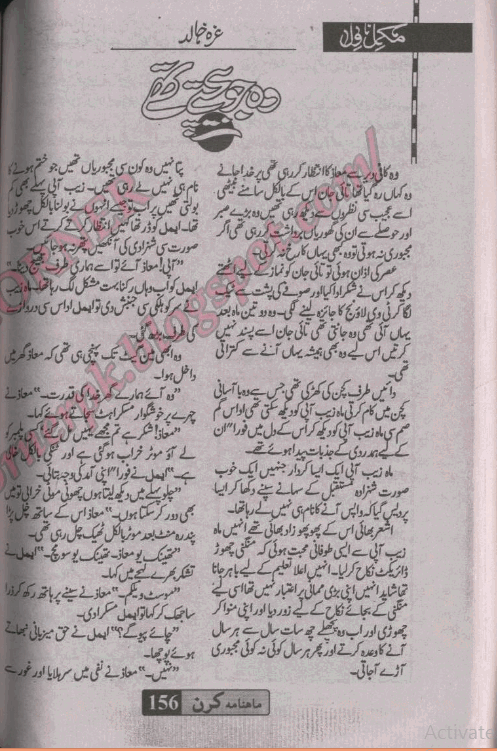 مکمل ناول
عزہ خالد
وہ کافی دیر سے معاذ کا انتظار کر رہی تھی پر خدا جانے
وہ کہاں رہ گیا تھا۔ نانی جان اس کے بالکل سامنے بیٹھی
اسے عجیب سی نظروں سے دیکھ رہی تھیں وہ بڑے صبر
اور حوصلے سے ان کی گھوریاں برداشت کر رہی تھی اگر
مجبوری نہ ہوتی تو وہ کبھی یہاں کا رخ نہ کرتی۔
عصر کی اذان ہوئی تو نانی جان کو نماز کے لیے اٹھتے
دیکھ کر اس نے شکر ادا کیا اور صوفے کی پشت سے ٹیک
لگا کر ٹی وی لاؤنج کا جائزہ لینے لگی۔ وہ دو تین ماہ بعد
یہاں آئی تھی وہ جانتی تھی نانی جان اسے پسند نہیں
کرتیں اس لیے وہ بھی ہمیشہ یہاں آنے سے کتراتی
تھی۔
دائیں طرف کچن کی کھڑکی تھی جس سے وہ با آسانی
کچن میں کام کرتی ماہ زیب آپی کو دیکھ سکتی تھی اداس گم
صم سی ماہ زیب آپی کو دیکھ کر اس کے دل میں فوراً" ان
کے لیے ہمدردی کے جذبات پیدا ہوئے تھے۔
ماہ زیب آپی ایک ایسا کردار جنہیں ایک خوب
صورت شہزادہ مستقبل کے سہانے سپنے دکھا کر ایسا
پردیس گیا کہ واپس آنے کا نام ہی نہیں لے رہا تھا۔
اشعر بھائی اس کے پھوپھو زاد بھائی تھے انہیں ماہ
زیب آپی سے ایسی طوفانی محبت ہوئی کہ منگنی چھوڑ
ڈائریکٹ نکاح کر لیا۔ انہیں اعلا تعلیم کے لیے باہر جانا
تھا شاید انہیں اپنی بڑی ممانی پر اعتبار نہیں تھا اسی لیے
منگنی کے بجائے نکاح کے لیے زور دیا اور اپنی منوا کر
چھوڑی اور اب وہ پچھلے چھ سات سال سے ہر سال
آنے کا وعدہ کرتے اور پھر ہر سال کوئی نہ کوئی مجبوری
آڑے آجاتی۔
پتا نہیں وہ کون سی مجبوریاں تھیں جو ختم ہونے کا
نام ہی نہیں لے رہی تھیں۔ زیب آپی پہلے بھی کم
بولتی تھیں پر اب تو جیسے انہوں نے بولنا بالکل چھوڑ دیا
تھا۔ ایمل کو ڈر تھا کہیں انتظار کرتے کرتے اس خوب
صورت سی شہزادی کی آنکھیں پتھر نہ ہو جائیں۔
"آپی! معاذ آئے تو اسے ہماری طرف بھیج دینا۔"
ایمل کو اب وہاں رکنا بہت مشکل لگ رہا تھا۔ ماہ زیب
نے سر کو ہلکی سی جنبش دی تو ایمل اداس سی دروازے
کی طرف
وہ ابھی مین گیٹ تک پہنچی ہی تھی کہ معاذ گھر میں
داخل ہوا۔
"وہ آئے ہمارے گھر خدا کی قدرت۔" معاذ نے
چہرے پر خوشگوار مسکراہٹ سجاتے ہوئے کہا۔
"معاذ! شکر ہے تم مجھے یہیں مل گئے۔ کسی پلمبر کو
لے آؤ موٹر خراب ہو گئی ہے اور ٹنکی بالکل خالی
ہے۔" ایمل نے فوراً" اپنی آمد کی وجہ بتائی۔
"چلو پہلے میں دیکھ لیتا ہوں چھوٹی موٹی خرابی تو میں
بھی دور کر سکتا ہوں۔" معاذ اس کے ساتھ چل پڑا
پندرہ منٹ بعد موٹر بالکل ٹھیک چل رہی تھی۔
"تھینک یو معاذ۔ تھینک یو سو مچ۔" ایمل نے
تشکر بھرے لہجے میں کہا۔
"موسٹ ویلکم۔" معاذ نے سینے پر ہاتھ رکھ کر ذرا
سا جھک کر کہا تو ایمل مسکرا دی۔
"چائے پیو گے؟" ایمل نے حق میزبانی نبھاتے
ہوئے پوچھا۔
"نہیں۔" معاذ نے نفی میں سر ہلایا اور غور سے
ماہنامہ کرن 156
Activate